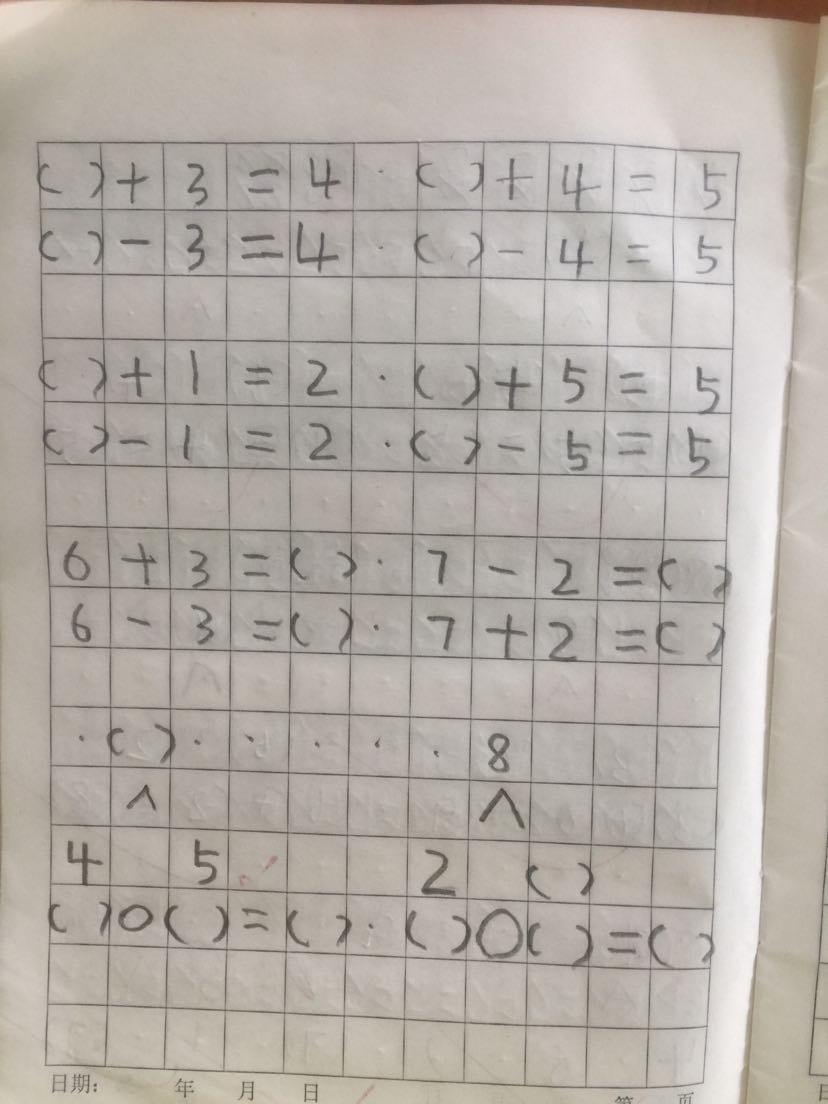 ( ) + 3 = 4 · ( ) + 4 = 5
( ) - 3 = 4 · ( ) - 4 = 5
( ) + 1 = 2 · ( ) + 5 = 5
( ) - 1 = 2 · ( ) - 5 = 5
6 + 3 = ( ) · 7 - 2 = ( )
6 - 3 = ( ) · 7 + 2 = ( )
· ( ) · · · · · 8
∧ ∧
4 5 2 ( )
( ) ○ ( ) = ( ) · ( ) ○ ( ) = ( )
日期: 年 月 日 第 页